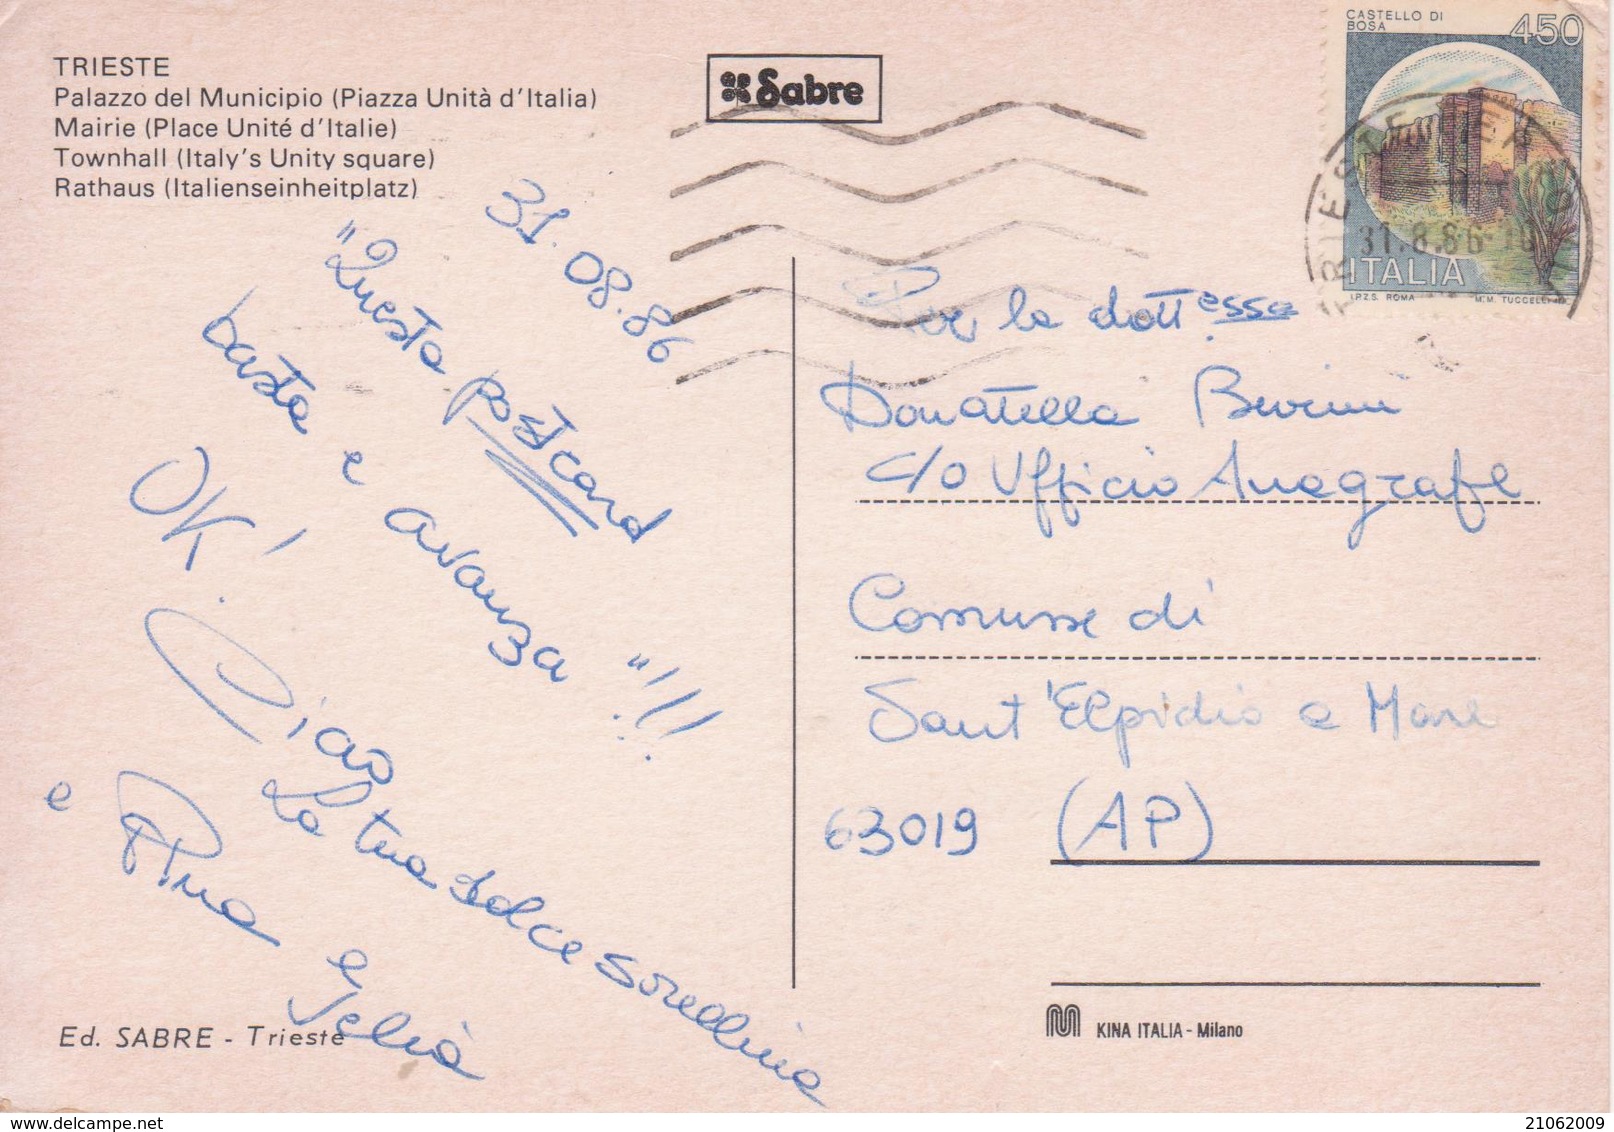 TRIESTE
Palazzo del Municipio (Piazza Unità d'Italia)
Mairie (Place Unité d'Italie)
Townhall (Italy's Unity square)
Rathaus (Italienseinheitplatz)
Sabre
CASTELLO DI
BOSA
450
31.8.86-10
ITALIA
I.P.Z.S. ROMA
31.08.86
"Questa postcard
basta e avanza"!!!
OK!
Ciao
La tua dolce sorellina
e Pina e
Per la dott.essa
Donatella
c/o Ufficio Anagrafe
Comune di
Sant'Elpidio a Mare
63019 (AP)
Ed. SABRE - Trieste
KINA ITALIA - Milano
21062009